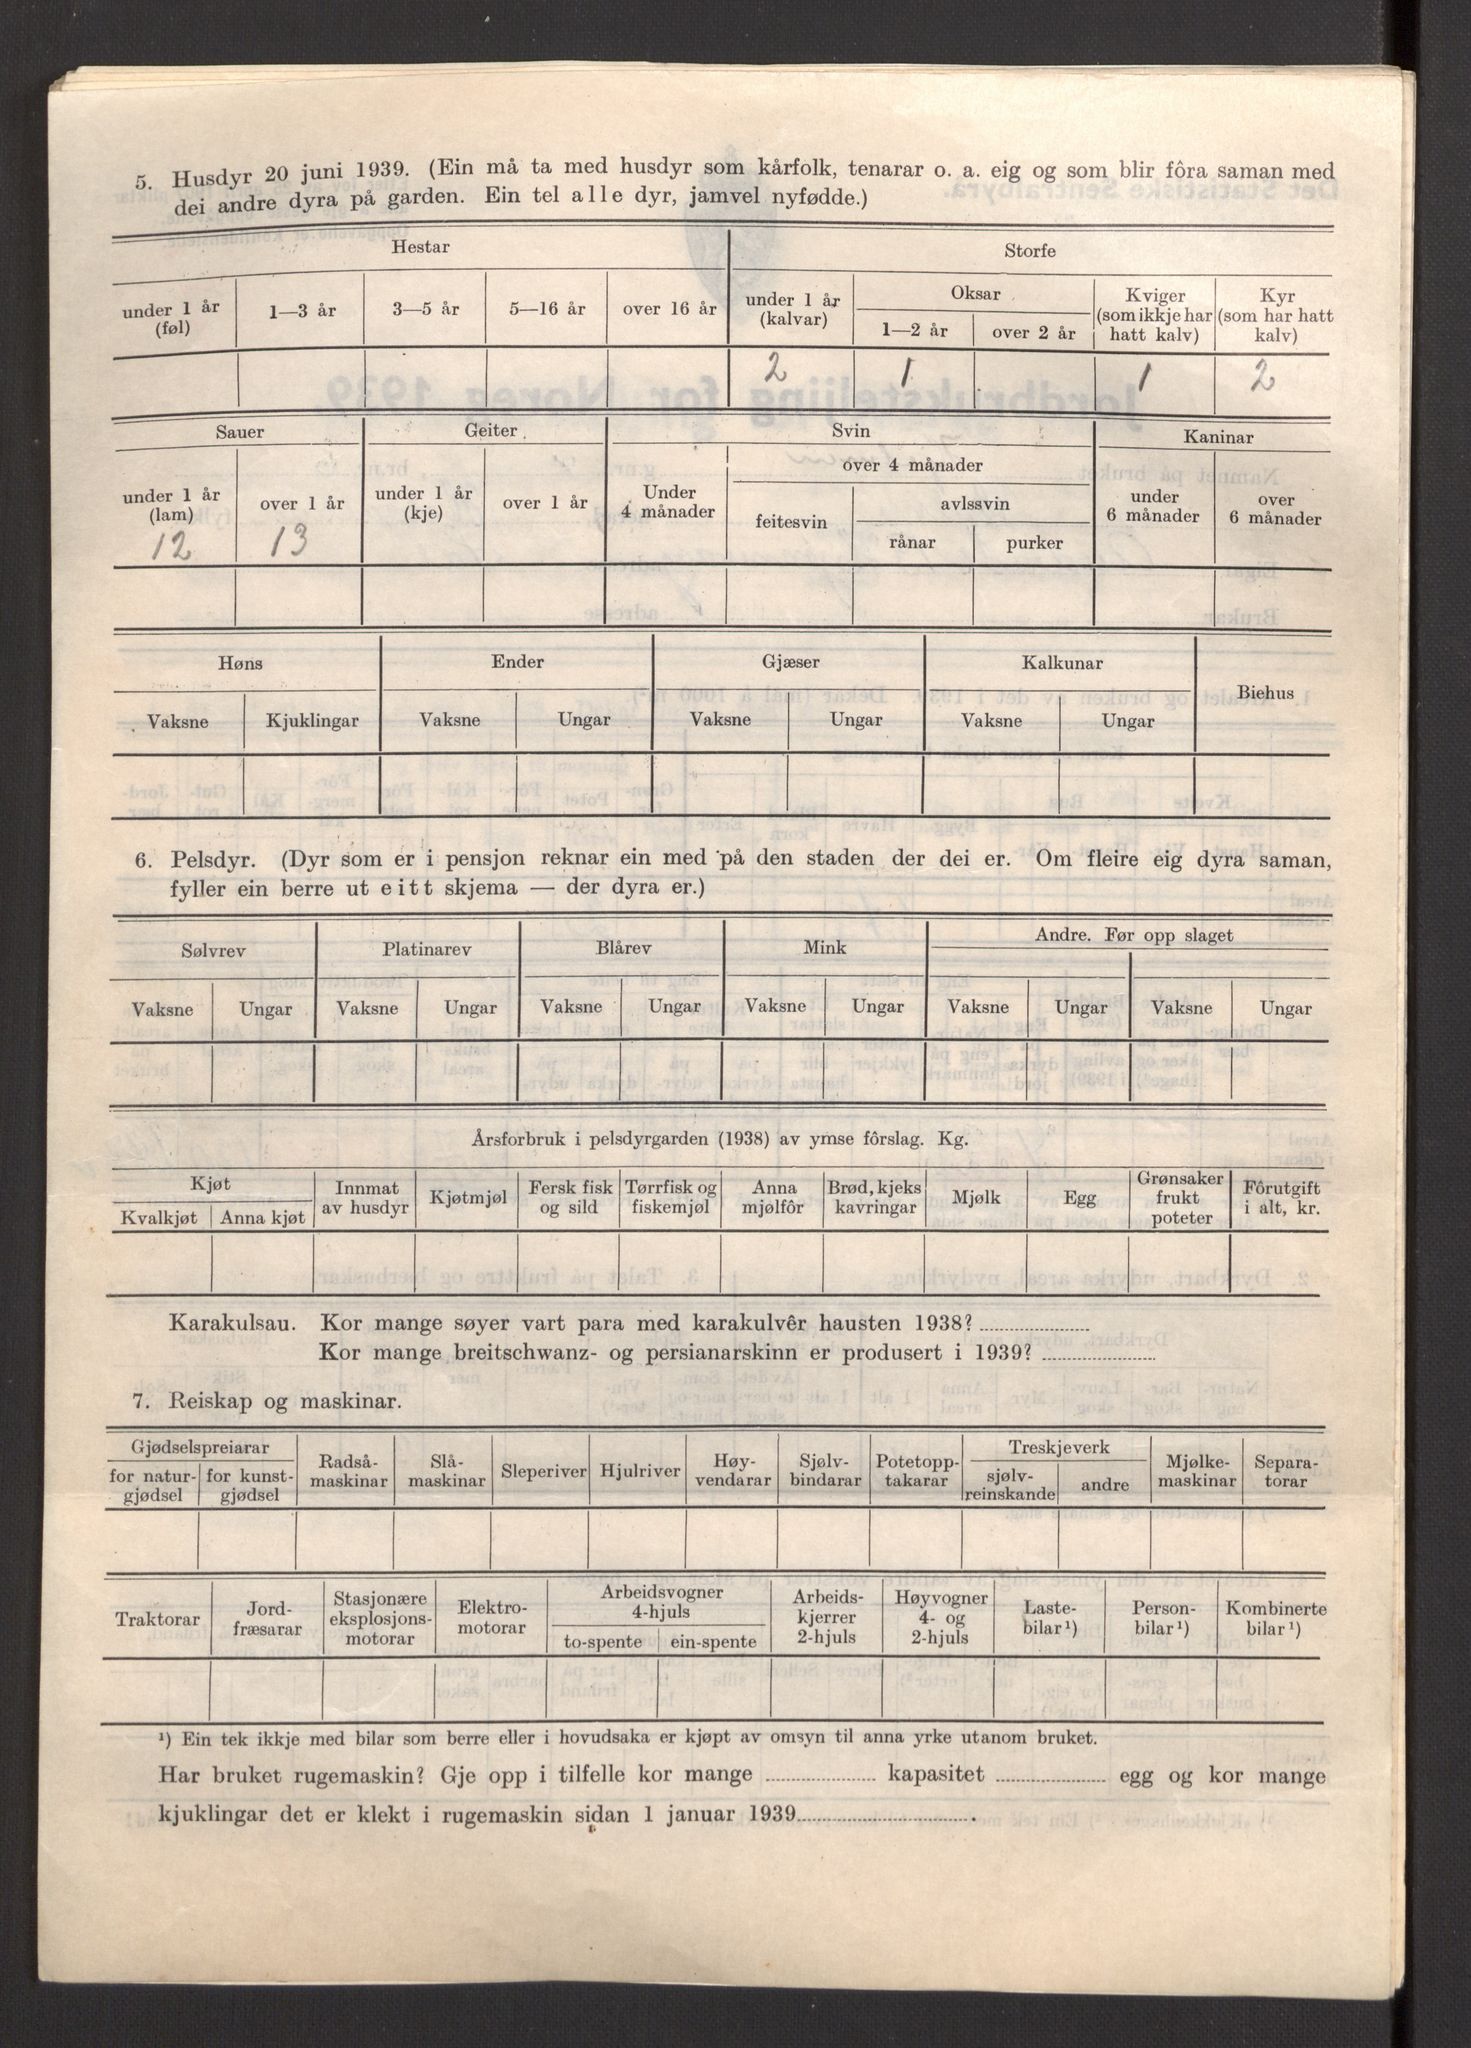 5. Husdyr 20 juni 1939. (Ein må ta med husdyr som kårfolk, tenarar o. a. eig og som blir fôra saman med
dei andre dyra på garden. Ein tel alle dyr, jamvel nyfødde.)
Hestar Storfe
under 1 år (føl) 1—3 år 3—5 år 5—16 år over 16 år under 1 år (kalvar) Oksar 1—2 år over 2 år Kviger (som ikkje har hatt kalv) Kyr (som har hatt kalv)
2 1 1 2
Sauer Geiter Svin Kaninar
under 1 år (lam) over 1 år under 1 år (kje) over 1 år Under 4 månader over 4 månader feitesvin avlssvin rånar purker under 6 månader over 6 månader
12 13
Høns Ender Gjæser Kalkunar Biehus
Vaksne Kjuklingar Vaksne Ungar Vaksne Ungar Vaksne Ungar
6. Pelsdyr. (Dyr som er i pensjon reknar ein med på den staden der dei er. Om fleire eig dyra saman,
fyller ein berre ut eitt skjema — der dyra er.)
Sølvrev Platinarev Blårev Mink Andre. Før opp slaget
Vaksne Ungar Vaksne Ungar Vaksne Ungar Vaksne Ungar Vaksne Ungar Vaksne Ungar
Årsforbruk i pelsdyrgarden (1938) av ymse fôrslag. Kg.
Kjøt Kvalkjøt Anna kjøt Innmat av husdyr Kjøtmjøl Fersk fisk og sild Tørrfisk og fiskemjøl Anna mjølfôr Brød, kjeks kavringar Mjølk Egg Grønsaker frukt poteter Fôrutgift i alt, kr.
Karakulsau. Kor mange søyer vart para med karakulvêr hausten 1938?
Kor mange breitschwanz- og persianarskinn er produsert i 1939?
7. Reiskap og maskinar.
Gjødselspreiarar for natur-gjødsel for kunst-gjødsel Radså-maskinar Slå-maskinar Sleperiver Hjulriver Høy-vendarar Sjølv-bindarar Potetopp-takarar Treskjeverk sjølv-reinskande andre Mjølke-maskinar Separa-torar
Traktorar Jord-fræsarar Stasjonære eksplosjons-motorar Elektro-motorar Arbeidsvogner 4-hjuls to-spente ein-spente Arbeids-kjerrer 2-hjuls Høyvogner 4- og 2-hjuls Laste-bilar¹) Person-bilar¹) Kombinerte bilar¹)
¹) Ein tek ikkje med bilar som berre eller i hovudsaka er kjøpt av omsyn til anna yrke utanom bruket.
Har bruket rugemaskin? Gje opp i tilfelle kor mange kapasitet egg og kor mange
kjuklingar det er klekt i rugemaskin sidan 1 januar 1939.